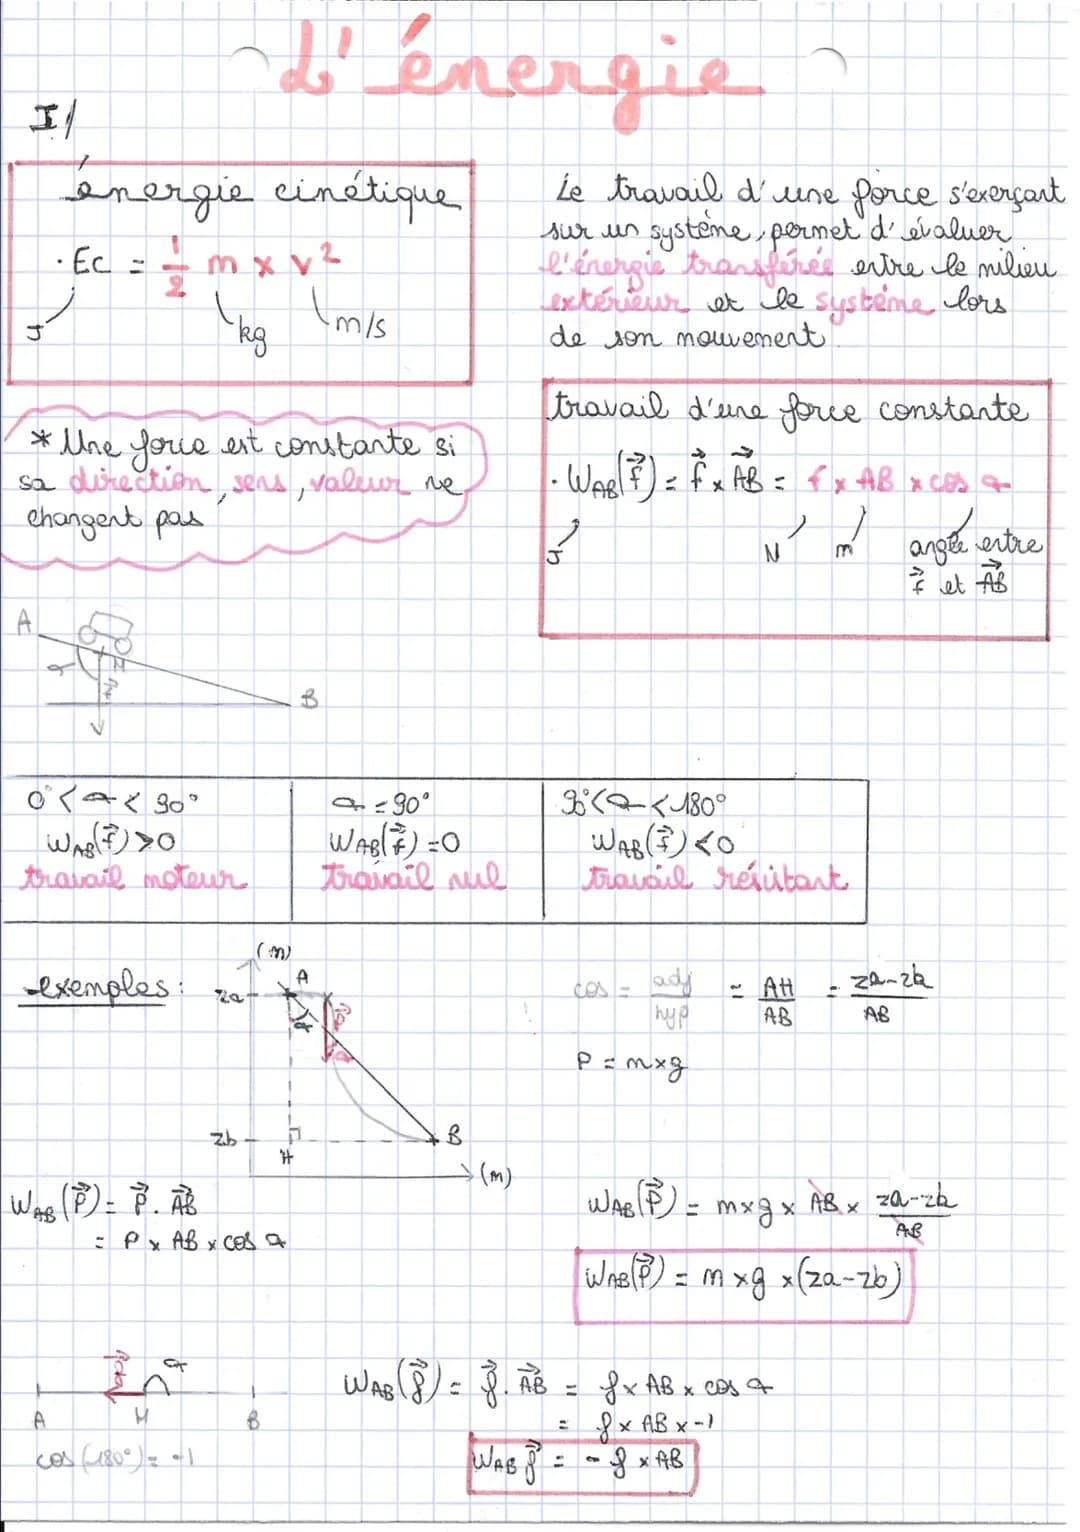 L'énergie
I/
énergie cinétique
· Ec = 1/2 m x v²
J kg m/s
Le travail d'une force s'exerçant
sur un système, permet d'évaluer
l'énergie transférée entre le milieu
extérieur et le système lors
de son mouvement.
* Une force est constante si
sa direction, sens, valeur ne
changent pas
travail d'une force constante
· WAB(f⃗) = f⃗ x AB⃗ = f x AB x cos α
J N m angle entre
f⃗ et AB⃗
A
α
B
0° < α < 90°
WAB(f⃗) > 0
travail moteur
α = 90°
WAB(f⃗) = 0
travail nul
90° < α < 180°
WAB(f⃗) < 0
travail résistant
exemples :
(m)
za A
α P⃗
α
zb B
H
(m)
cos = adj/hyp = AH/AB = za-zb/AB
P = m x g
WAB(P⃗) = P⃗ . AB⃗
= P x AB x cos α
WAB(P⃗) = m x g x AB x za-zb/AB
WAB(P⃗) = m x g x (za-zb)
f⃗ α
A M B
cos(180°) = -1
WAB(f⃗) = f⃗ . AB⃗ = f x AB x cos α
= f x AB x -1
WAB f⃗ = - f x AB